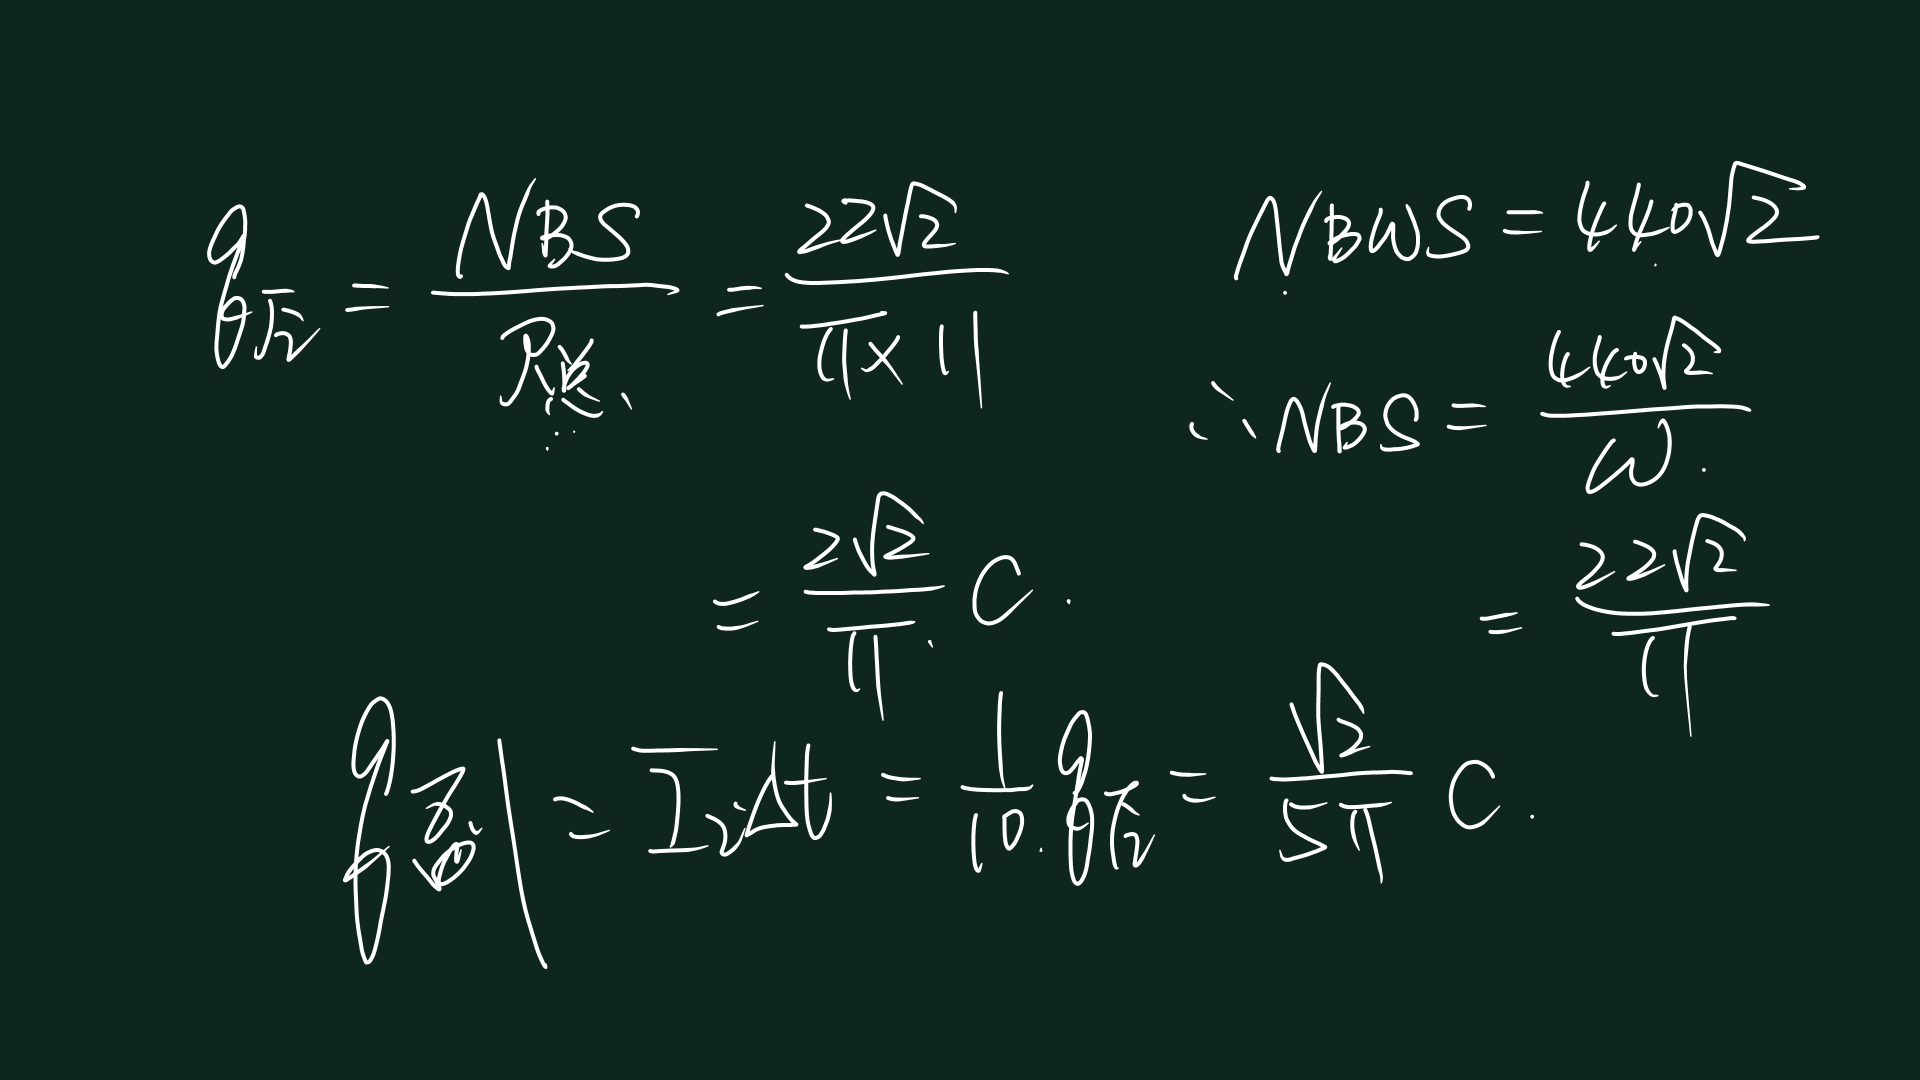 q = NBS/R总 = 22√2/(π×11)
= 2√2/π C.
NBωS = 440√2
∴NBS = 440√2/ω
= 22√2/π
q副 = I̅₂Δt = 1/10 · q = √2/5π C.